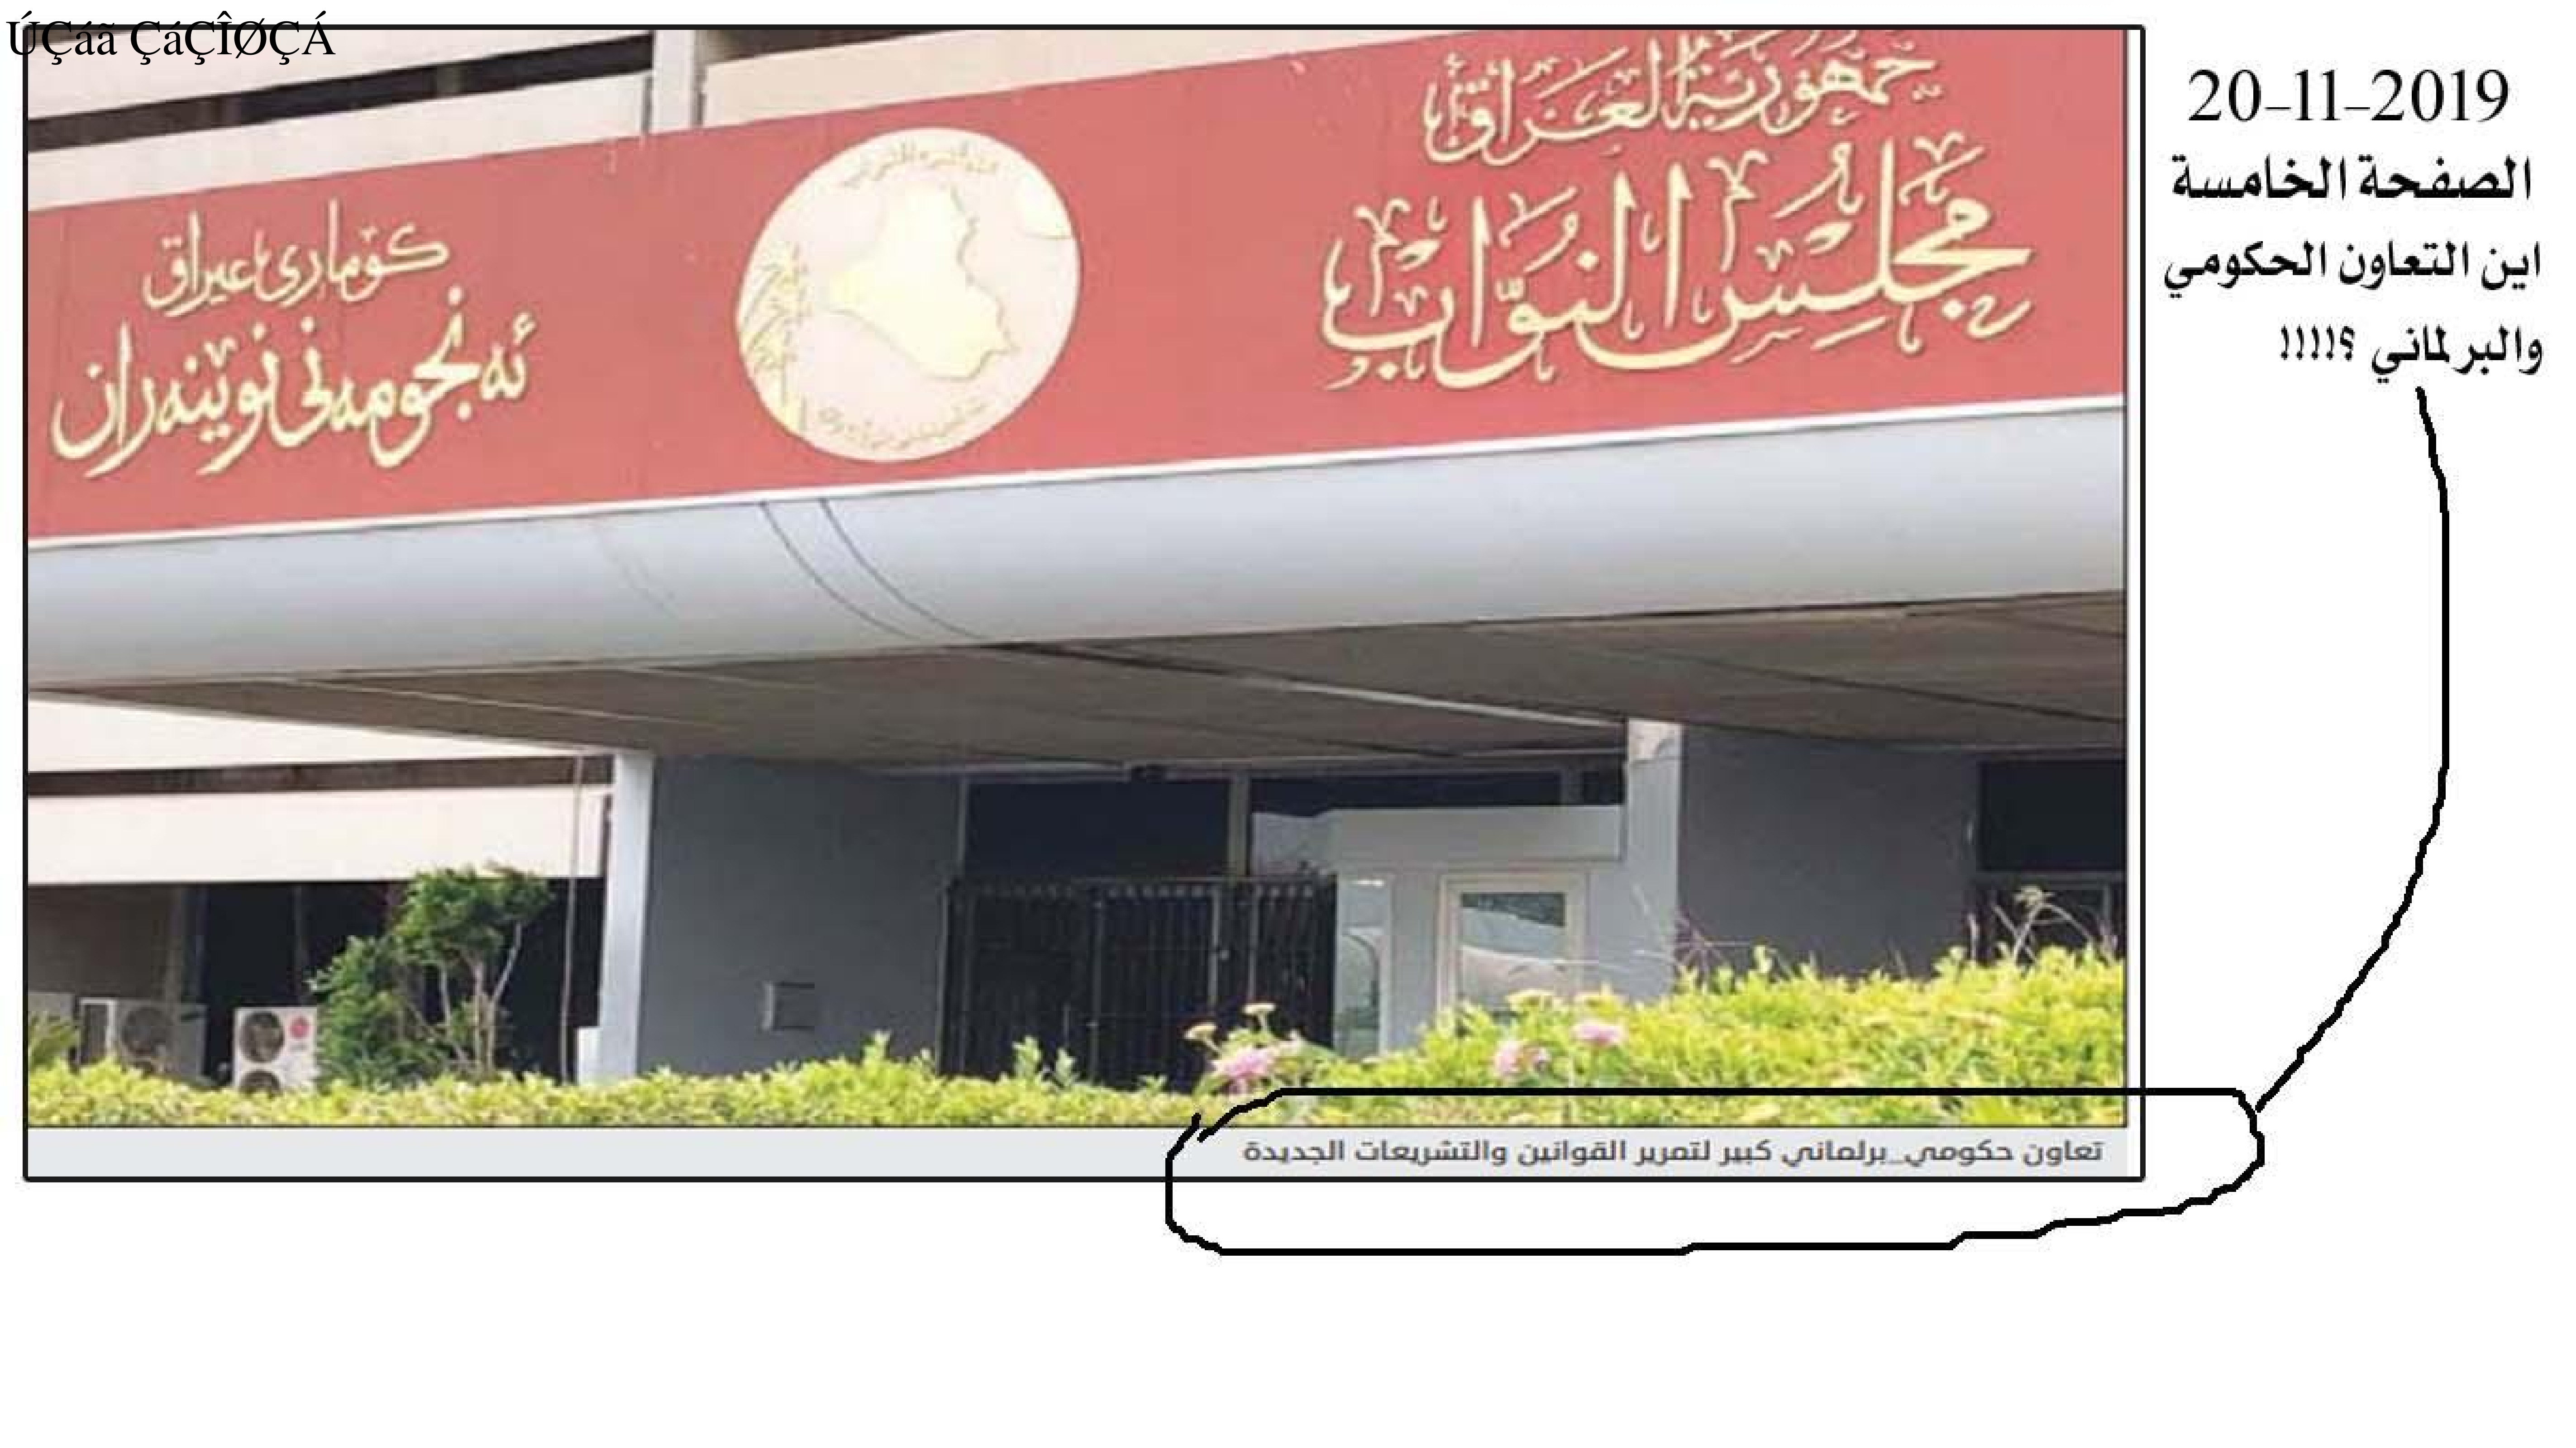 ÚÇáã ÇáÇÎØÇÁ
20-11-2019
الصفحة الخامسة
اين التعاون الحكومي
والبرلماني ؟!!!!!
جمهورية العراق
مجلس النواب
كۆماری عیراق
ئەنجومەنی نوێنەران
تعاون حكومي_برلماني كبير لتمرير القوانين والتشريعات الجديدة